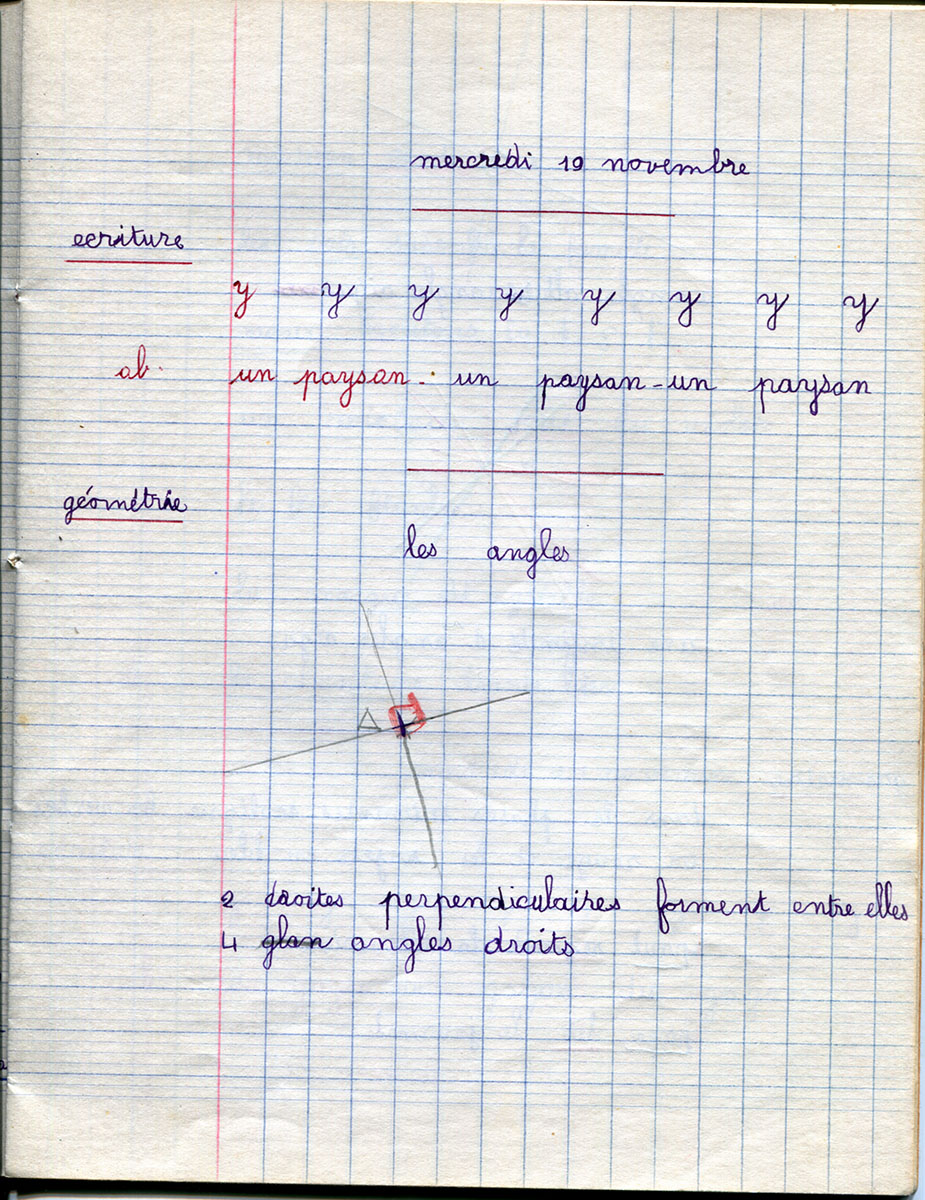 mercredi 19 novembre
ecriture
y y y y y y y y
ab. un paysan - un paysan - un paysan
géométrie
les angles
2 droites perpendiculaires forment entre elles
4 glan angles droits